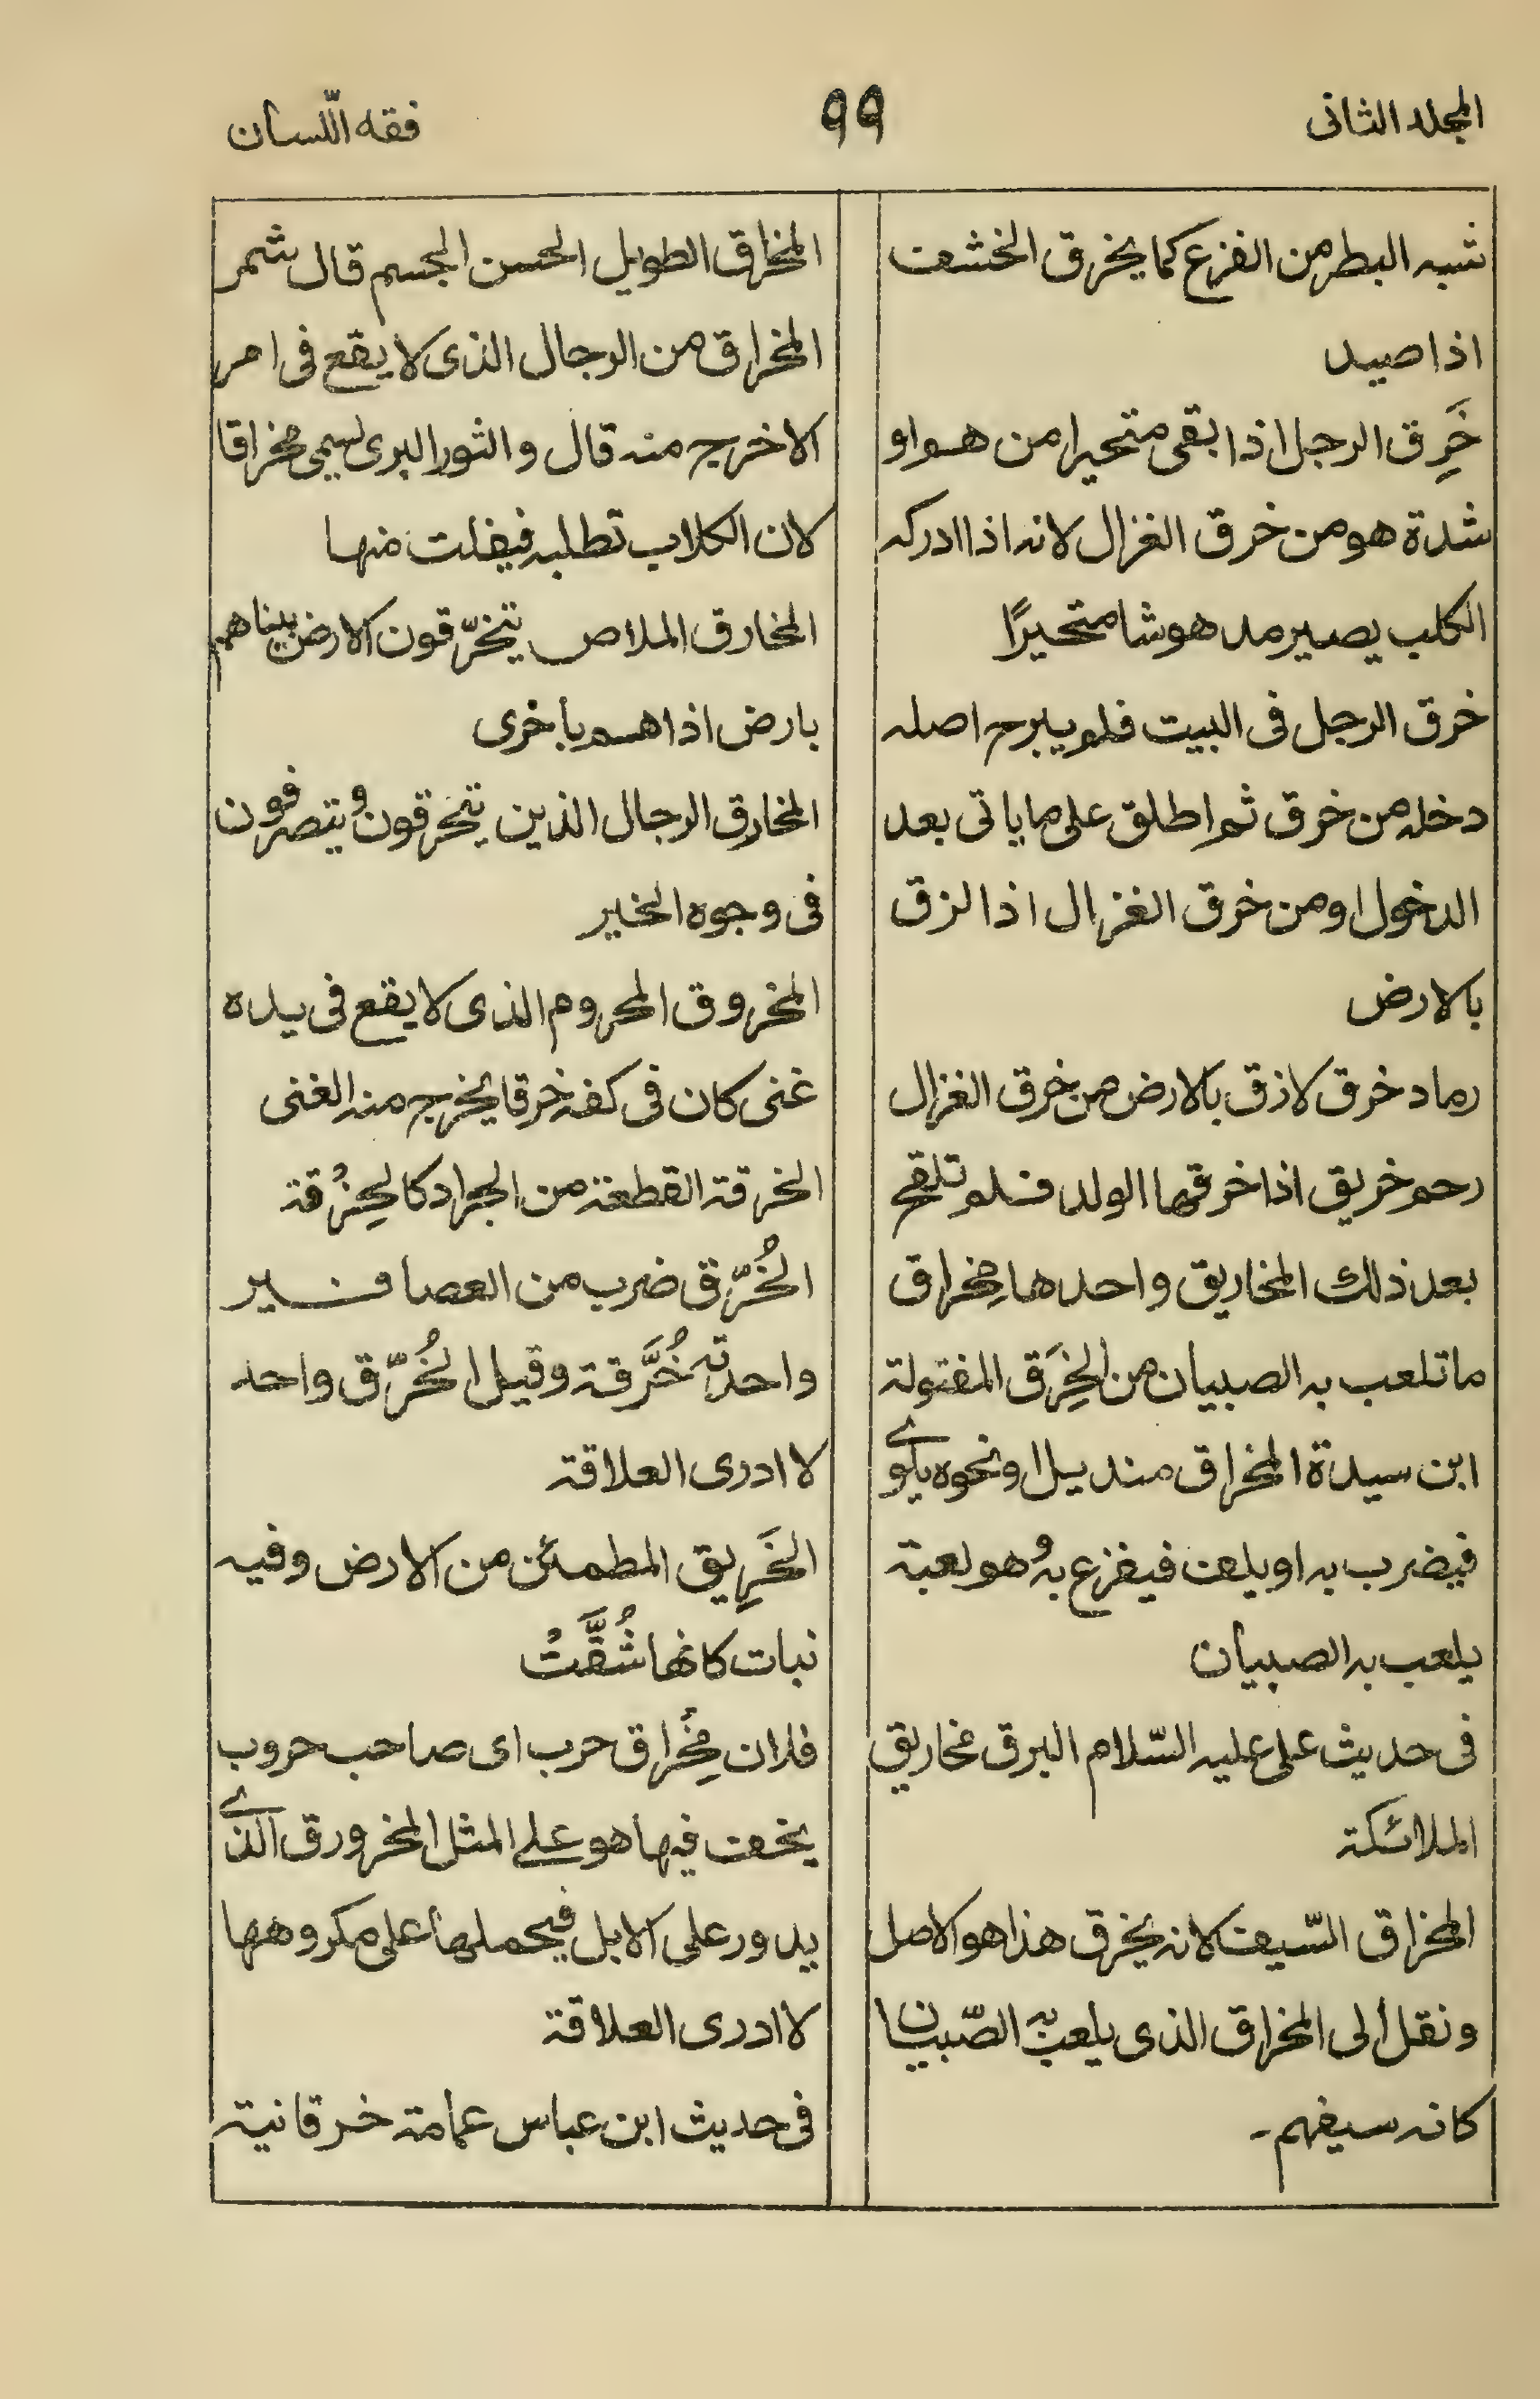 المجلد الثانی
٩٩
فقه اللّسان
شبه البطر من الفزع كما يخرق الخشف
اذا صيد
خَرِق الرجل اذا بقی متحيرا من هم او
شدة هو من خرق الغزال لانه اذا ادركه
الكلب يصير مدهوشا متحيرًا
خرق الرجل فی البيت فلم يبرح اصله
دخله من خرق ثم اطلق علی ما ياتی بعد
الدخول او من خرق الغزال اذا لزق
بالارض
رماد خرق لازق بالارض من خرق الغزال
رحم خريق اذا خرقها الولد فلم تلقح
بعد ذلك المخاريق واحدها مِخراق
ما تلعب به الصبيان من الخِرَق المفتولة
ابن سيدة المخراق منديل او نحوه يلوے
فيضرب به او يلف فيفزع به وهو لعبة
يلعب به الصبيان
فی حديث علی عليه السّلام البرق مخاريق
الملائكة
المخراق السّيف لانه يخرق هذا هو الاصل
ونقل الی المخراق الذی يلعب به الصّبيان
كانه سيفهم -
المخراق الطويل الحسن الجسم قال شمر
المخراق من الرجال الذی لا يقع فی امر
الا خرج منه قال والثور البری يسمی مخراقا
لان الكلاب تطلبه فيفلت منها
المخارق الملاص يتخرّقون الارض بيناهم
بارض اذا هم باخری
المخارق الرجال الذين يتخرقون ويتصرفون
فی وجوه الخير
المخروق المحروم الذی لا يقع فی يده
غنی كان فی كفه خرقا يخرج منه الغنی
الخرقة القطعة من الجراد كالحِزْقة
الخُرّق ضرب من العصافير
واحدته خُرَّقة وقيل الخُرّق واحد
لا ادری العلاقة
الخَرِيق المطمئن من الارض وفيه
نبات كانها شُقَّتْ
فلان مِخْراق حرب ای صاحب حروب
يخف فيها هو علے المثل المخرورق الذے
يدور علی الابل فيحملها علی مكروهها
لا ادری العلاقة
فی حديث ابن عباس عمامة خرقانية